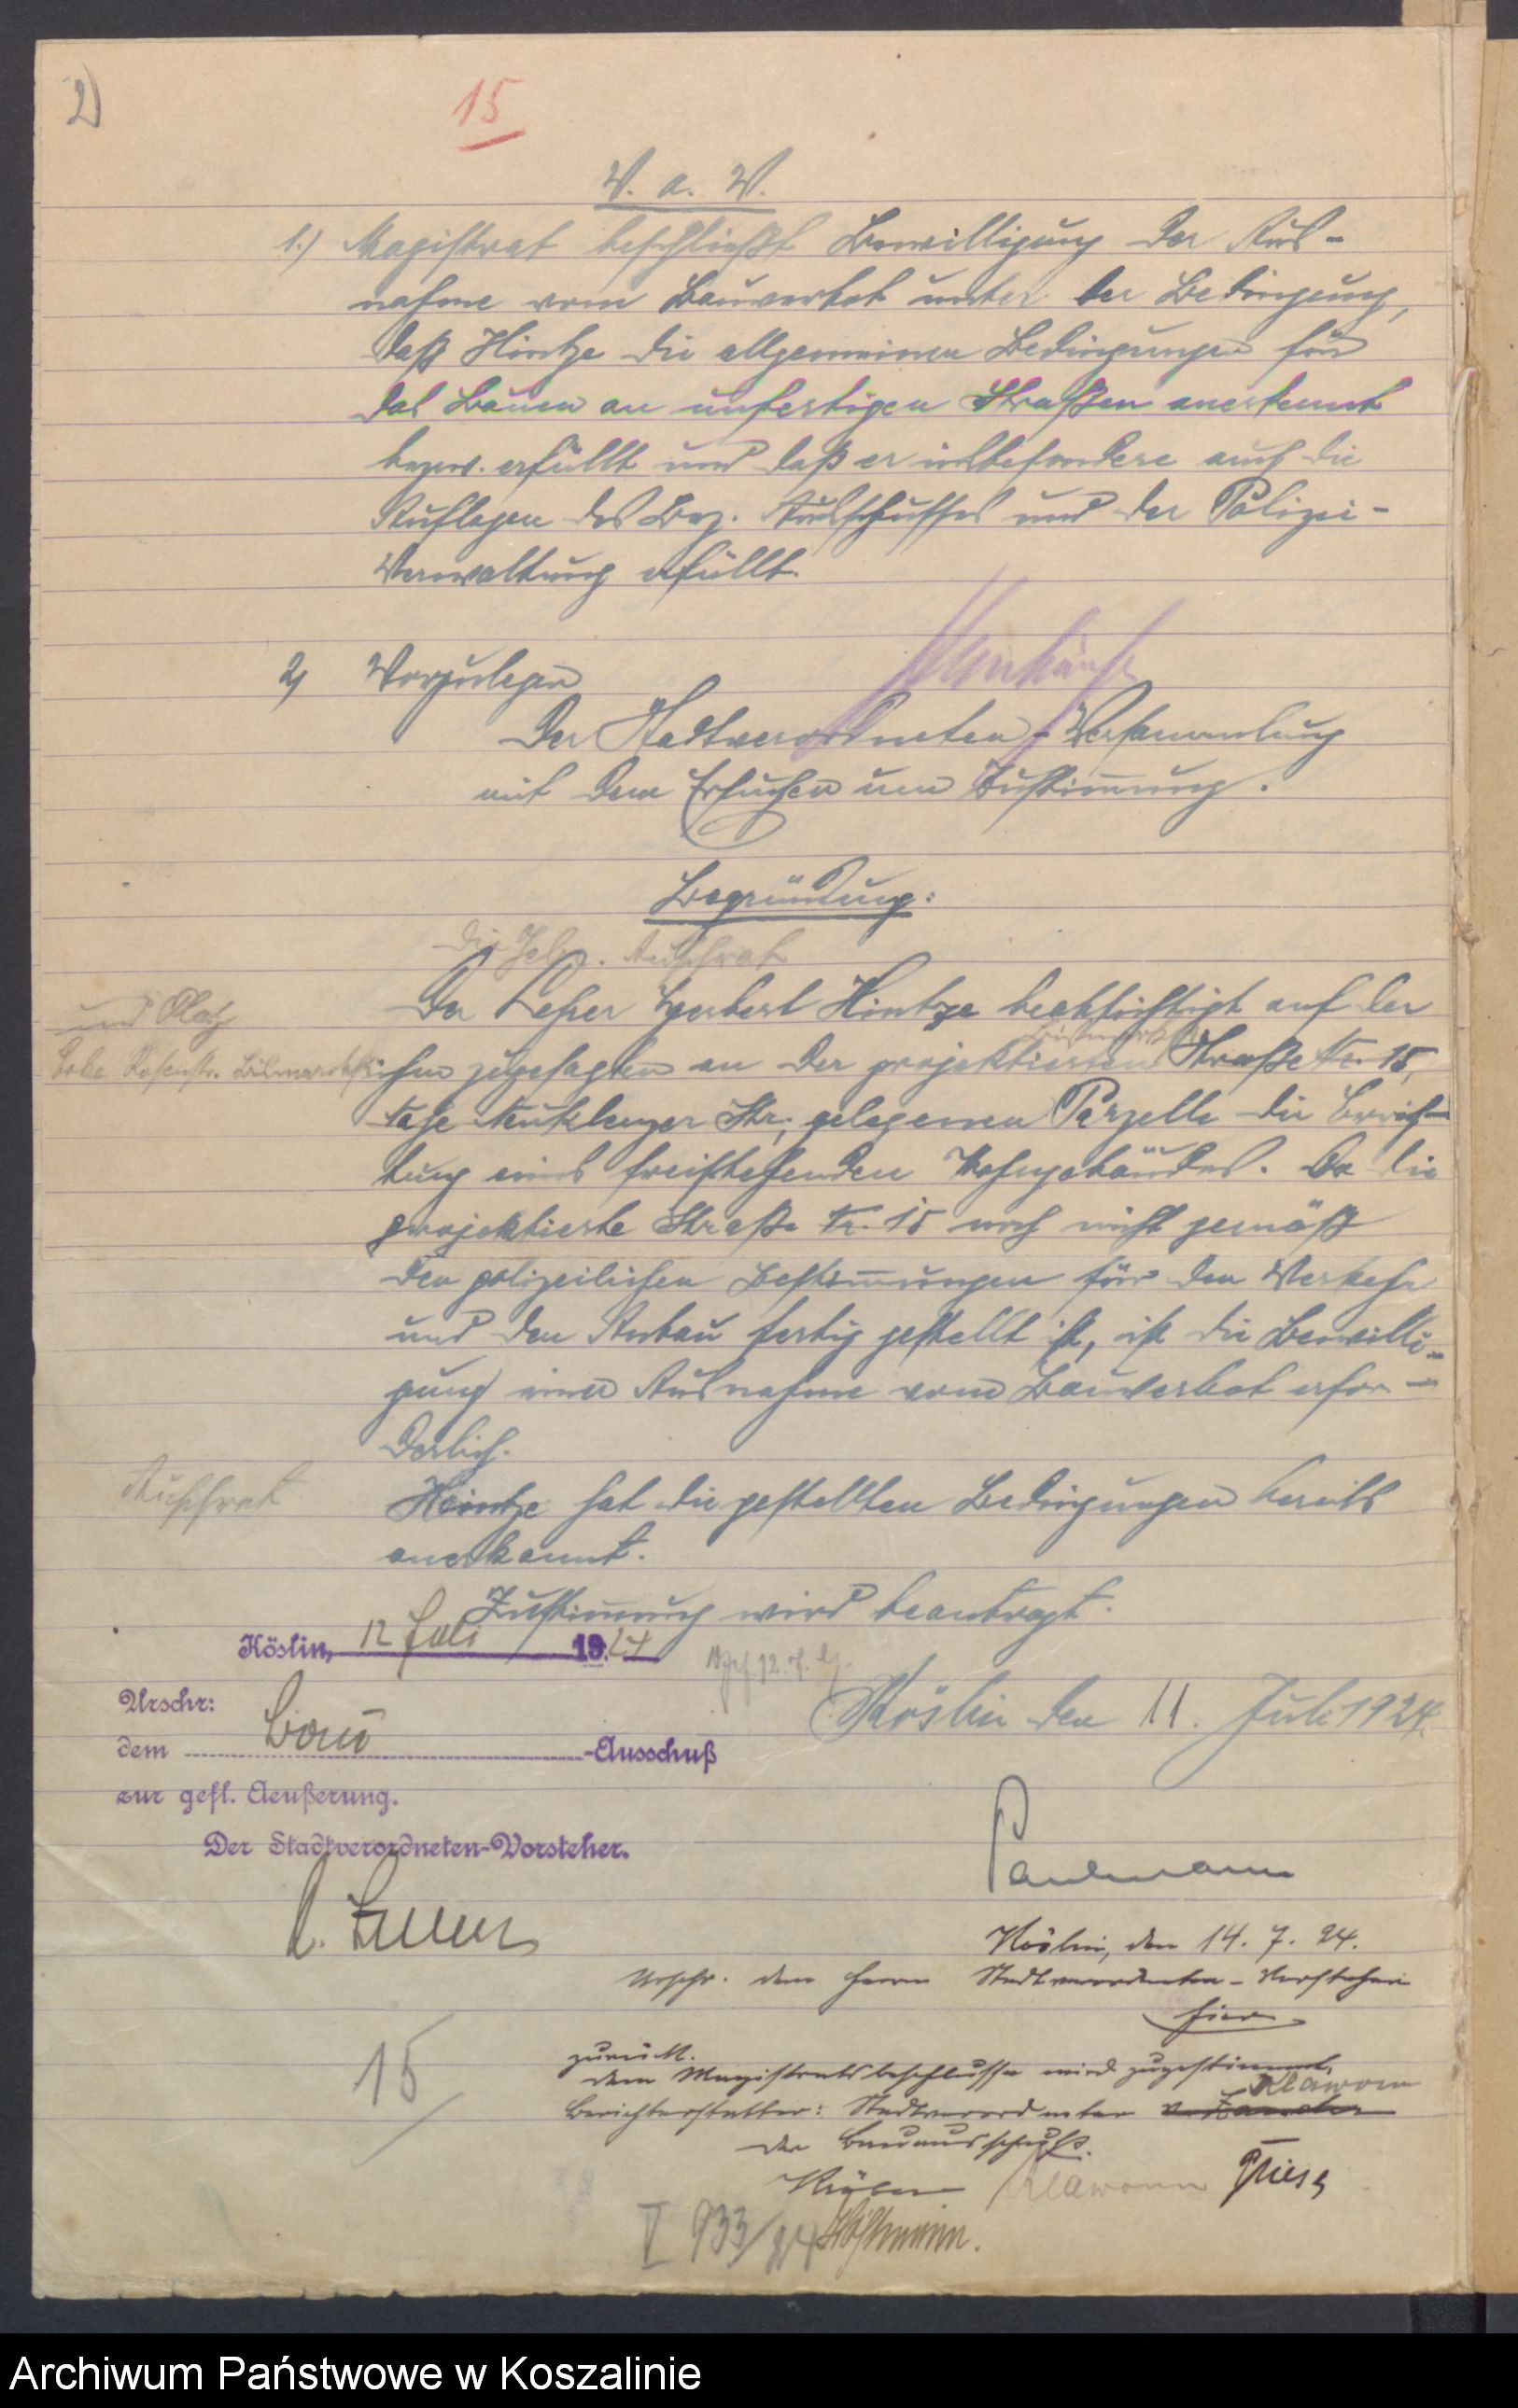 2)
15
V. a. W.
1.) Magistrat beschließt Bewilligung der Aus-
nahme vom Bauverbot unter der Bedingung,
daß Hintze die allgemeinen Bedingungen für
das Bauen an unfertigen Straßen anerkennt
bezw. erfüllt und daß er insbesondere auch die
Auflagen des Bez. Ausschusses und der Polizei-
Verwaltung erfüllt.
2) Vorzulegen
Der Stadtverordneten-Versammlung
mit dem Ersuchen um Zustimmung.
Begründung:
Der Lehrer Herbert Hintze beabsichtigt auf der
und Platz
ihm zugesagten an der projektierten Straße Nr. 15,
Ecke Rosenstr. Bismarckstr.
gelegenen Parzelle die Errich-
tung eines freistehenden Wohngebäudes. Da die
projektierte Straße Nr. 15 noch nicht gemäß
den polizeilichen Bestimmungen für den Verkehr
und den Anbau fertig gestellt ist, ist die Bewilli-
gung einer Ausnahme vom Bauverbot erfor-
derlich.
Hintze hat die gestellten Bedingungen bereits
anerkannt.
Zustimmung wird beantragt.
Köslin, 12 Juli 1924
Köslin den 11. Juli 1924.
Urschr:
dem Bau-Ausschuß
zur gefl. Aeußerung.
Der Stadtverordneten-Vorsteher.
Köslin, den 14. 7. 24.
Urschr. dem Herrn Stadtverordneten-Vorsteher
hier
zurück.
Dem Magistratsbeschlusse wird zugestimmt.
Klawonn
Berichterstatter: Stadtverordneter
Der Bauausschuß.
Klawonn
15
V 933/24
Archiwum Państwowe w Koszalinie